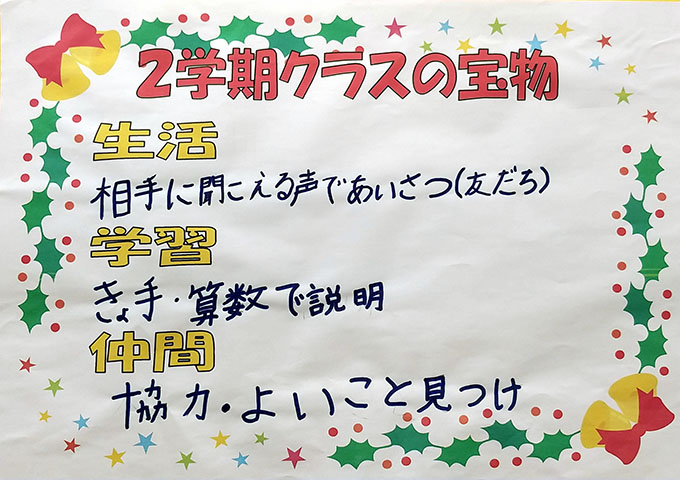 2学期クラスの宝物
生活
相手に聞こえる声であいさつ(友だち)
学習
きょ手・算数で説明
仲間
協力・よいこと見つけ